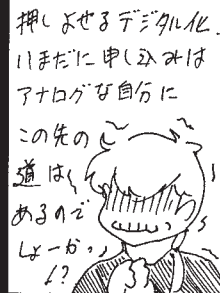 押しよせるデジタル化.
いまだに申し込みは
アナログな自分に
この先の
道は
あるので
しょーかっ
!?